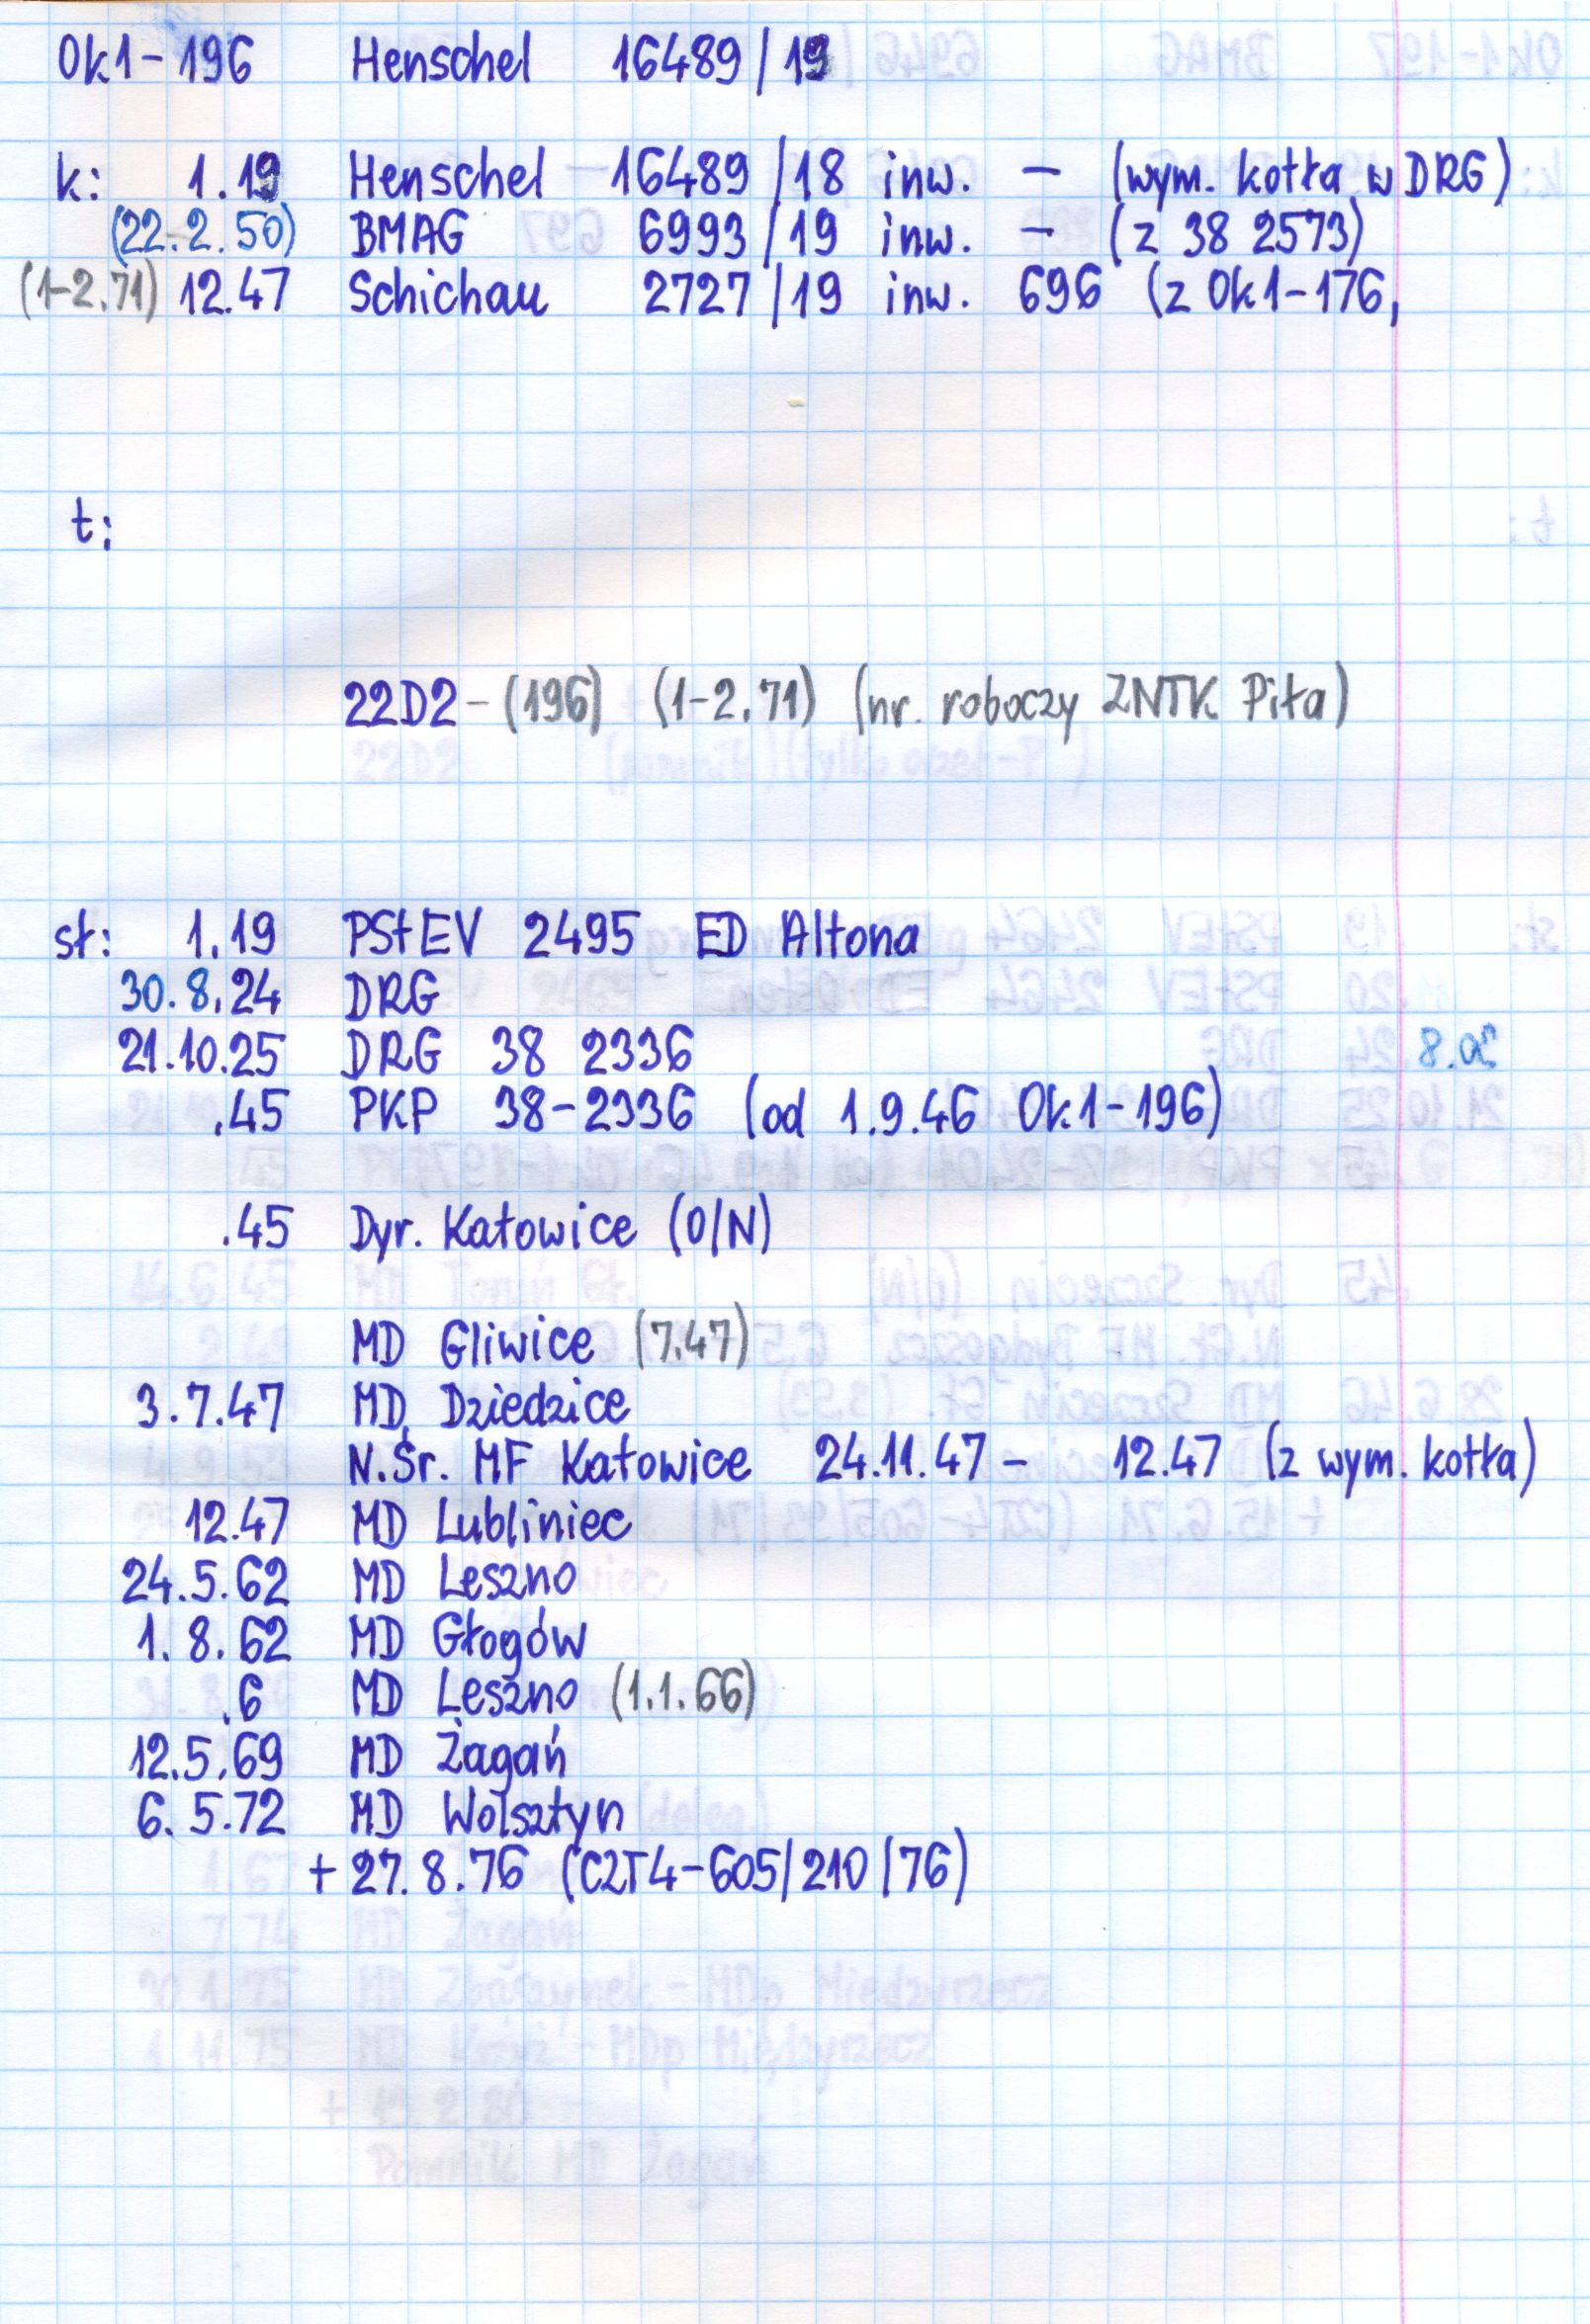 Ok1-196 Henschel 16489/19
k: 1.19 Henschel 16489/18 inw. - (wym. kotła w DRG)
(22.2.50) BMAG 6993/19 inw. - (z 38 2573)
(1-2.71) 12.47 Schichau 2727/19 inw. 696 (z Ok1-176,
t:
22D2-(196) (1-2.71) (nr. roboczy ZNTK Piła)
sł: 1.19 PStEV 2495 ED Altona
30.8.24 DRG
21.10.25 DRG 38 2336
.45 PKP 38-2336 (od 1.9.46 Ok1-196)
.45 Dyr. Katowice (O/N)
MD Gliwice (7.47)
3.7.47 MD Dziedzice
N.Śr. MF Katowice 24.11.47 - 12.47 (z wym. kotła)
12.47 MD Lubliniec
24.5.62 MD Leszno
1.8.62 MD Głogów
.6 MD Leszno (1.1.66)
12.5.69 MD Żagań
6.5.72 MD Wolsztyn
+ 27.8.76 (CZT4-605/210/76)